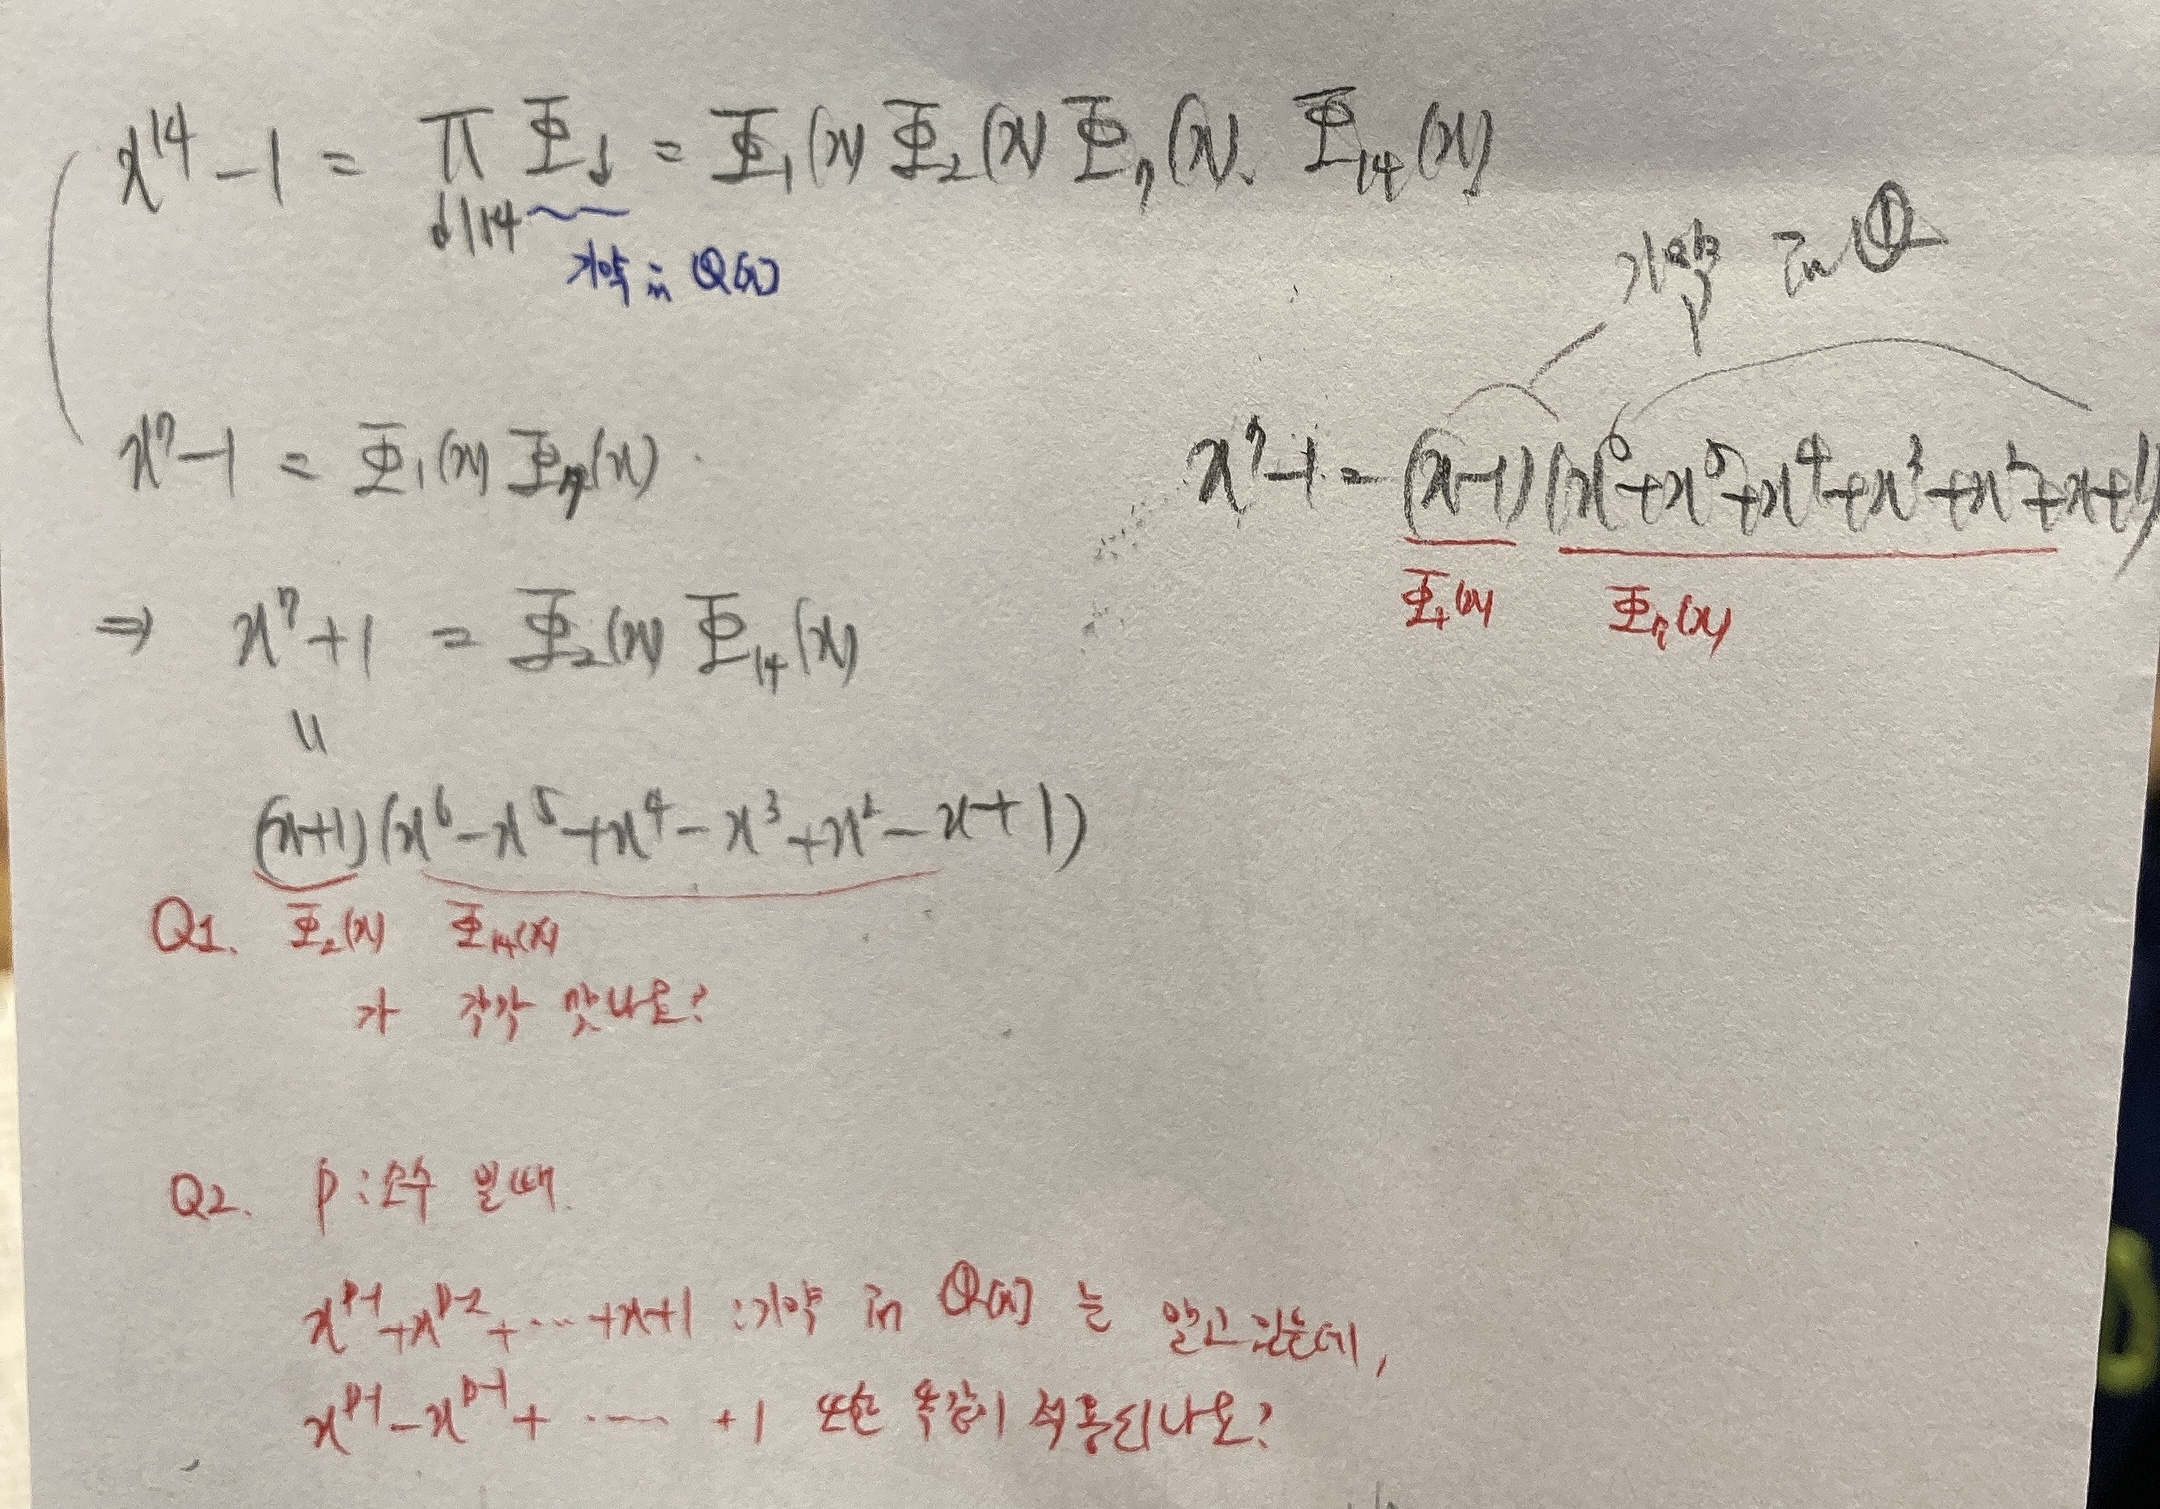 x¹⁴-1 = π Φd = Φ₁(x) Φ₂(x) Φ₇(x). Φ₁₄(x)
d|14
기약 in Q[x]
기약 in Q
x⁷-1 = Φ₁(x) Φ₇(x).
x⁷-1 = (x-1)(x⁶+x⁵+x⁴+x³+x²+x+1)
Φ₁(x) Φ₇(x)
⇒ x⁷+1 = Φ₂(x) Φ₁₄(x)
=
(x+1)(x⁶-x⁵+x⁴-x³+x²-x+1)
Q1. Φ₂(x) Φ₁₄(x)
가 각각 맞나요?
Q2. p : 소수 일때.
xᵖ⁻¹+xᵖ⁻²+ ··· +x+1 : 기약 in Q[x] 는 알고있는데,
xᵖ⁻¹-xᵖ⁻¹+ ···· +1 또한 똑같이 적용되나요?